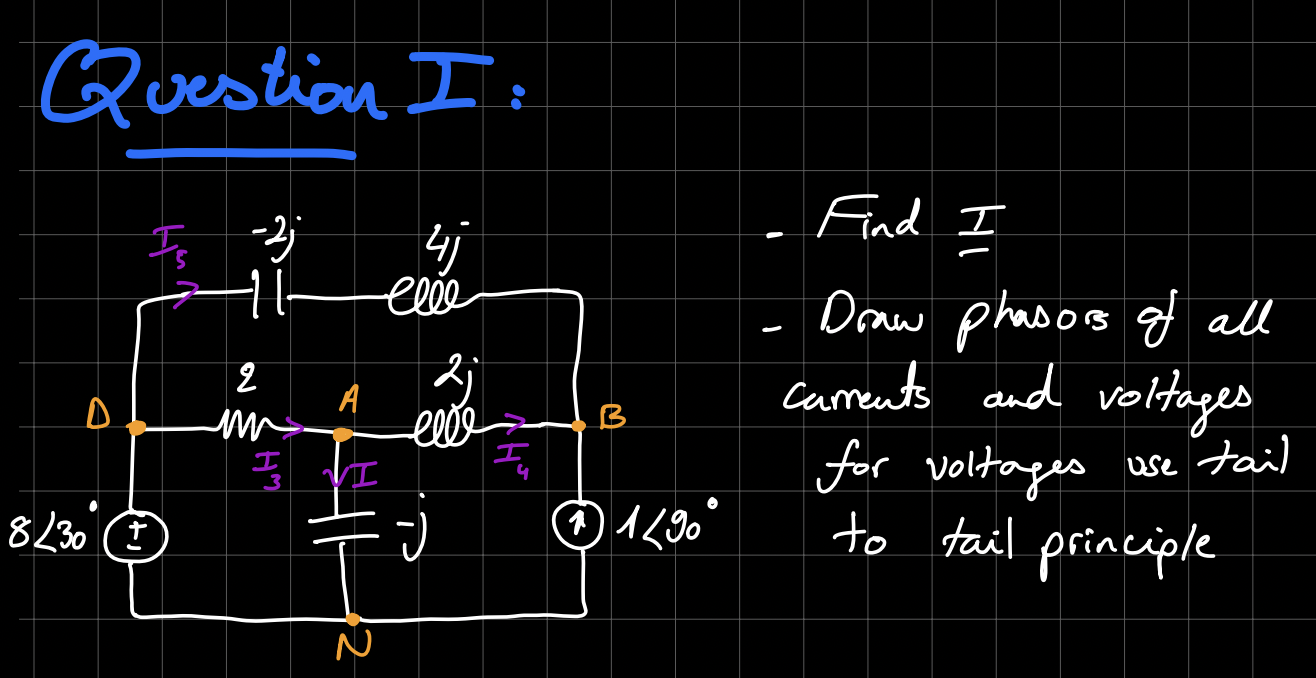 Question I:
I₅
-2j
4j
2
2j
D
A
B
I₃
I
I₄
8∠30°
±
-j
1∠90°
N
- Find I
- Draw phasors of all
currents and voltages
for voltages use tail
to tail principle